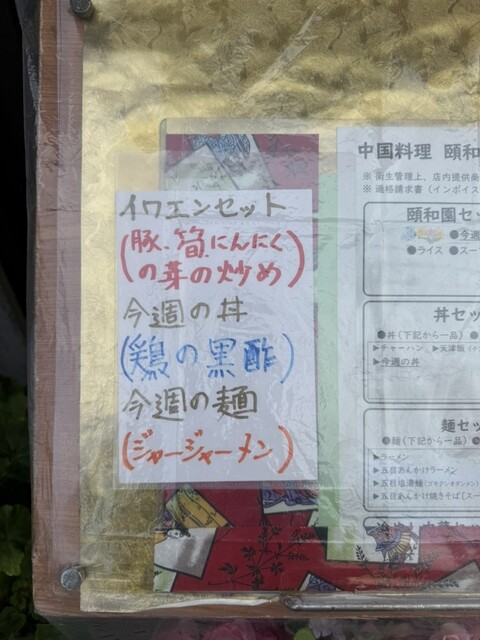 イワエンセット
(豚、筍、にんにく
の芽の炒め)
今週の丼
(鶏の黒酢)
今週の麺
(ジャージャーメン)
中国料理 頤和
※ 衛生管理上、店内提供
※ 適格請求書(インボイス
頤和園セッ
●今週
●ライス ●スー
丼セッ
●丼(下記から一品)
▶チャーハン ▶天津飯
▶今週の丼
麺セッ
●麺(下記から一品)
▶ラーメン
▶五目あんかけラーメン
▶五目塩湯麺
▶五目あんかけ焼きそば(スー